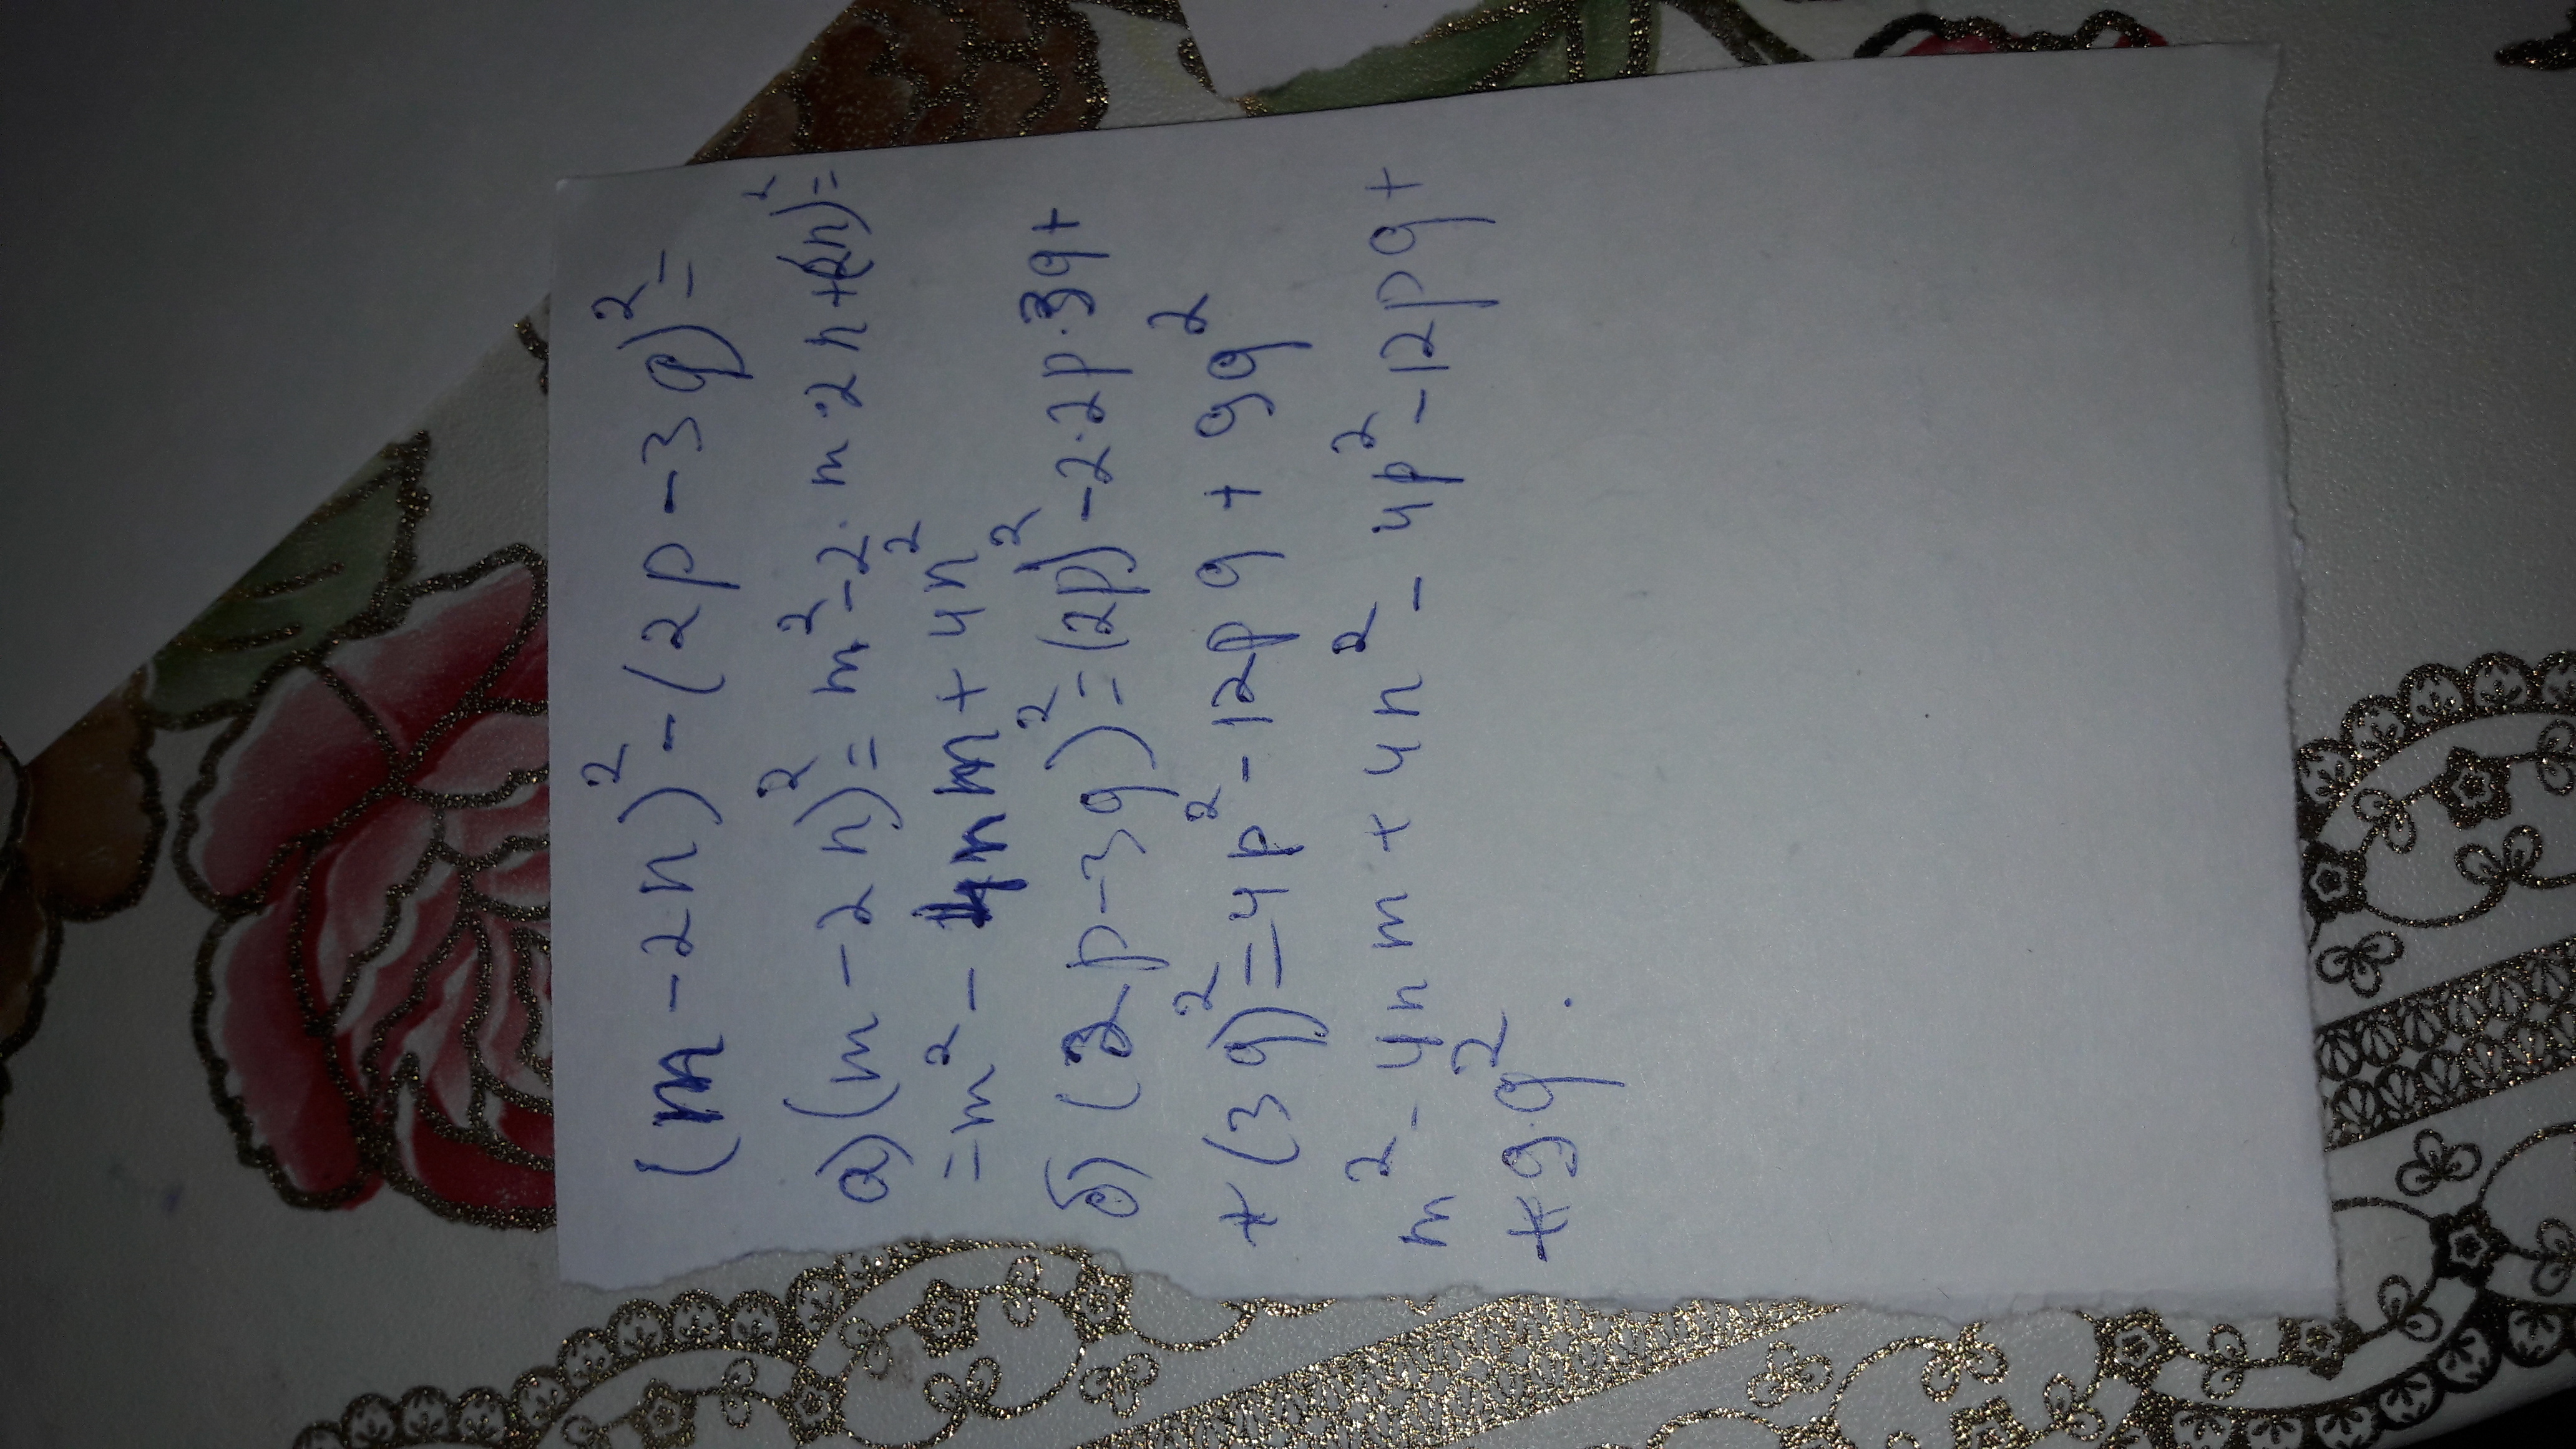 (m - 2n)² - (2p - 3q)² =
а) (m - 2n)² = m² - 2 · m · 2n + (2n)² =
= m² - 4nm + 4n²
б) (2p - 3q)² = (2p)² - 2 · 2p · 3q +
+ (3q)² = 4p² - 12pq + 9q²
m² - 4nm + 4n² - 4p² - 12pq +
+ 9·q².